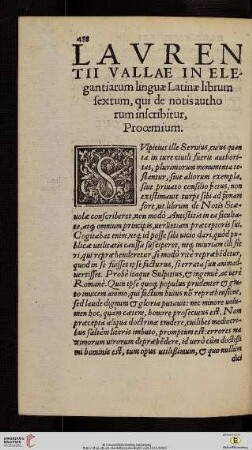 488
LAVREN
TII VALLAE IN ELE-
gantiarum linguæ Latinæ librum
sextum, qui de notis autho
rum inscribitur,
Proœmium.
SVlpitius ille Seruius, cuius quan
ta in iure ciuili fuerit authori-
tas, plurimorum monumenta te-
stantur, siue aliorum exemplo,
siue priuato consilio fretus, non
existimauit turpe sibi ad famam
fore, ut librum de Notis Scæ
uolæ conscriberet, non modò Antistitis in ea faculta-
te, atq; omnium principis, uerumetiam præceptoris sui.
Cogitabat enim, neq; id posse sibi uitio dari, quod pu-
blicæ utilitatis caussa susciperet, neq; iniuriam illi fie
ri, qui reprehenderetur si modò ritè reprehenditur,
quod in se fuisset ipse facturus, si errata sua animad-
uertisset. Probè itaque Sulpitius, & ingenuè, ac uerè
Romanè. Quin ipse quoq; populus prudenter & gra-
to iudicem animo, qui factum huius nō reprehensione,
sed laude dignum & gloria putauit: nec minore uolu-
men hoc, quàm cætera, honore prosecutus est. Nam
præcepta aliqua doctrinæ tradere, cuilibet mediocri-
bus saltem literis imbuto, promptum est: errores ue-
rò maximorum uirorum deprehendere, id uerò cùm doctissi
mi hominis est, tum opus utilissimum, & quo nullum
dici